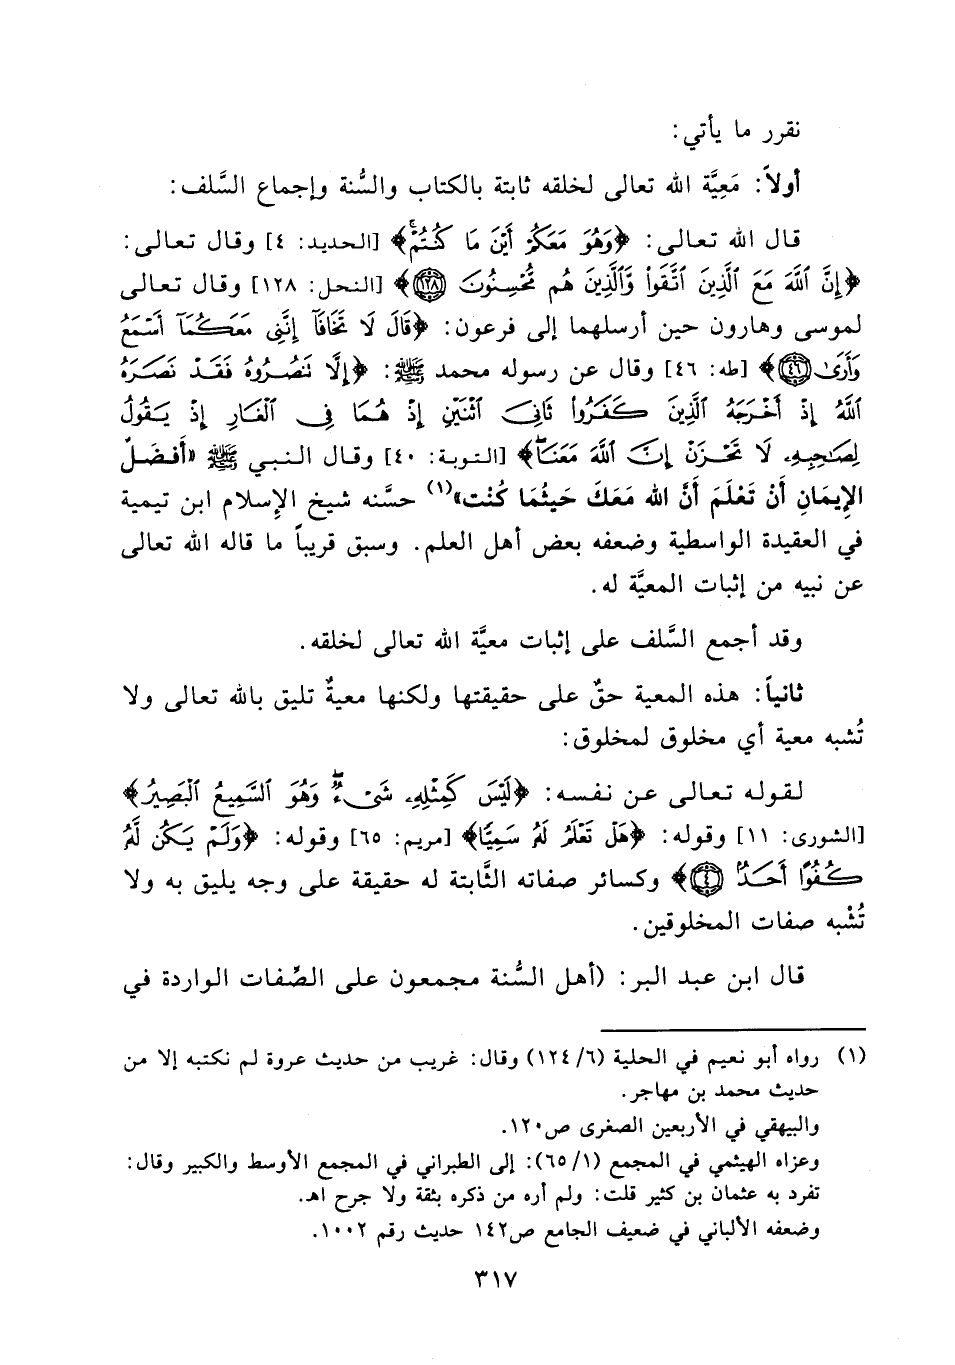 نقرر ما يأتي:
أولاً: مَعِيَّة الله تعالى لخلقه ثابتة بالكتاب والسُّنة وإجماع السَّلف:
قال الله تعالى: ﴿وَهُوَ مَعَكُمْ أَيْنَ مَا كُنتُمْۚ﴾ [الحديد: ٤] وقال تعالى:
﴿إِنَّ ٱللَّهَ مَعَ ٱلَّذِينَ ٱتَّقَوا۟ وَّٱلَّذِينَ هُم مُّحْسِنُونَ ١٢٨﴾ [النحل: ١٢٨] وقال تعالى
لموسى وهارون حين أرسلهما إلى فرعون: ﴿قَالَ لَا تَخَافَآ إِنَّنِى مَعَكُمَآ أَسْمَعُ
وَأَرَىٰ ٤٦﴾ [طه: ٤٦] وقال عن رسوله محمد ﷺ: ﴿إِلَّا تَنصُرُوهُ فَقَدْ نَصَرَهُ
ٱللَّهُ إِذْ أَخْرَجَهُ ٱلَّذِينَ كَفَرُوا۟ ثَانِىَ ٱثْنَيْنِ إِذْ هُمَا فِى ٱلْغَارِ إِذْ يَقُولُ
لِصَـٰحِبِهِۦ لَا تَحْزَنْ إِنَّ ٱللَّهَ مَعَنَاۖ﴾ [التوبة: ٤٠] وقال النبي ﷺ «أَفضَلُ
الإِيمَانِ أَنْ تَعْلَمَ أَنَّ الله مَعَكَ حَيثُمَا كُنْت»(١) حسَّنه شيخ الإِسلام ابن تيمية
في العقيدة الواسطية وضعفه بعض أهل العلم. وسبق قريباً ما قاله الله تعالى
عن نبيه من إثبات المعيَّة له.
وقد أجمع السَّلف على إثبات معيَّة الله تعالى لخلقه.
ثانياً: هذه المعية حقٌ على حقيقتها ولكنها معيةٌ تليق بالله تعالى ولا
تُشبه معية أي مخلوق لمخلوق:
لقوله تعالى عن نفسه: ﴿لَيْسَ كَمِثْلِهِۦ شَىْءٌۖ وَهُوَ ٱلسَّمِيعُ ٱلْبَصِيرُ﴾
[الشورى: ١١] وقوله: ﴿هَلْ تَعْلَمُ لَهُۥ سَمِيًّا﴾ [مريم: ٦٥] وقوله: ﴿وَلَمْ يَكُن لَّهُۥ
كُفُوًا أَحَدٌۢ ٤﴾ وكسائر صفاته الثَّابتة له حقيقة على وجه يليق به ولا
تُشْبه صفات المخلوقين.
قال ابن عبد البر: (أهل السُّنة مجمعون على الصِّفات الواردة في
(١) رواه أبو نعيم في الحلية (٦/ ١٢٤) وقال: غريب من حديث عروة لم نكتبه إلا من
حديث محمد بن مهاجر.
والبيهقي في الأربعين الصغرى ص١٢٠.
وعزاه الهيثمي في المجمع (١/ ٦٥): إلى الطبراني في المجمع الأوسط والكبير وقال:
تفرد به عثمان بن كثير قلت: ولم أره من ذكره بثقة ولا جرح اهـ.
وضعفه الألباني في ضعيف الجامع ص١٤٢ حديث رقم ١٠٠٢.
٣١٧